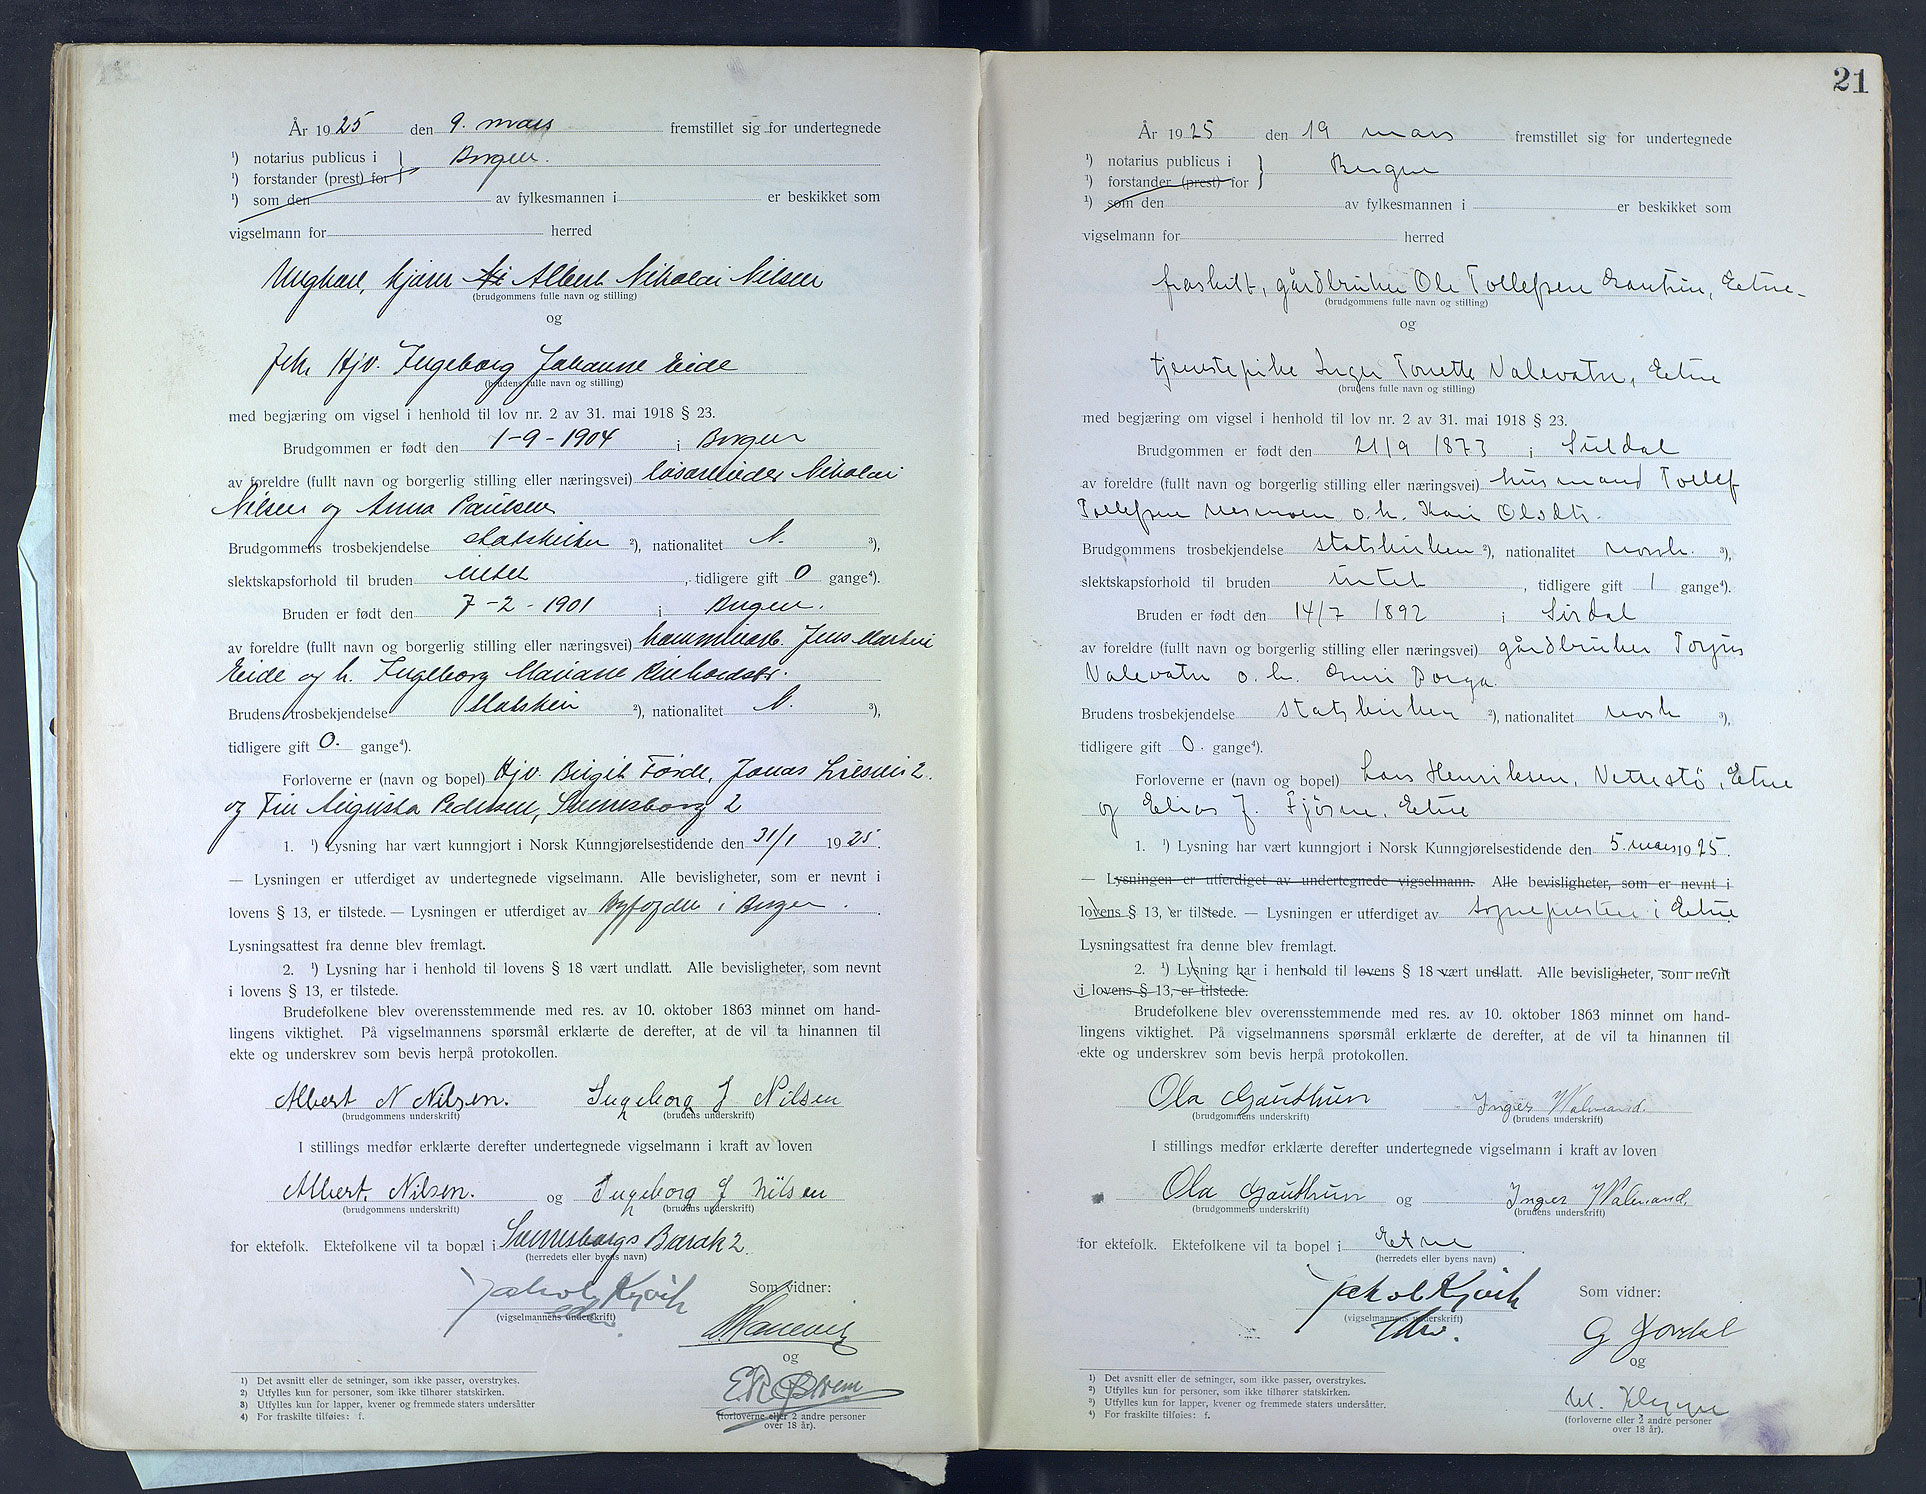 År 1925 den 9. mars fremstillet sig for undertegnede
¹) notarius publicus i } Bergen.
¹) forstander (prest) for
¹) som den av fylkesmannen i er beskikket som
vigselmann for herred
Ungkarl, kjører Ni Albert Nikolai Nilsen
(brudgommens fulle navn og stilling)
og
Frk. Hjv. Ingeborg Johanne Eide
(brudens fulle navn og stilling)
med begjæring om vigsel i henhold til lov nr. 2 av 31. mai 1918 § 23.
Brudgommen er født den 1-9-1904 i Bergen
av foreldre (fullt navn og borgerlig stilling eller næringsvei) løsarbeider Nikolai
Nilsen og Anna Paulsen
Brudgommens trosbekjendelse statskirken ²), nationalitet N. ³),
slektskapsforhold til bruden intet , tidligere gift 0 gange⁴).
Bruden er født den 7-2-1901 i Bergen.
av foreldre (fullt navn og borgerlig stilling eller næringsvei) Jens Martin
Eide og h. Ingeborg Mariane
Brudens trosbekjendelse statskir ²), nationalitet N. ³),
tidligere gift 0. gange⁴).
Forloverne er (navn og bopel) Hjv. Birgit Førde, Jonas 2.
og Fru Augusta Pedersen, 2
1. ¹) Lysning har vært kunngjort i Norsk Kunngjørelsestidende den 31/1 1925.
— Lysningen er utferdiget av undertegnede vigselmann. Alle bevisligheter, som er nevnt i
lovens § 13, er tilstede. — Lysningen er utferdiget av Byfogden i Bergen.
Lysningsattest fra denne blev fremlagt.
2. ¹) Lysning har i henhold til lovens § 18 vært undlatt. Alle bevisligheter, som nevnt
i lovens § 13, er tilstede.
Brudefolkene blev overensstemmende med res. av 10. oktober 1863 minnet om hand-
lingens viktighet. På vigselmannens spørsmål erklærte de derefter, at de vil ta hinannen til
ekte og underskrev som bevis herpå protokollen.
Albert N Nilsen. Ingeborg J Nilsen
(brudgommens underskrift) (brudens underskrift)
I stillings medfør erklærte derefter undertegnede vigselmann i kraft av loven
Albert. Nilsen. og Ingeborg J Nilsen
(brudgommens underskrift) (brudens underskrift)
for ektefolk. Ektefolkene vil ta bopæl i Barak 2.
(herredets eller byens navn)
Jakob Kjøik Som vidner:
(vigselmannens underskrift)
og
(forloverne eller 2 andre personer
over 18 år).
1) Det avsnitt eller de setninger, som ikke passer, overstrykes.
2) Utfylles kun for personer, som ikke tilhører statskirken.
3) Utfylles kun for lapper, kvener og fremmede staters undersåtter
4) For fraskilte tilføies: f.
21
År 1925 den 19 mars fremstillet sig for undertegnede
¹) notarius publicus i } Bergen
¹) forstander (prest) for
¹) som den av fylkesmannen i er beskikket som
vigselmann for herred
fraskilt, gårdbruker Ole Tollefsen Gauthun, Etne
(brudgommens fulle navn og stilling)
og
tjenestepike Inger Tonette Valevatn, Etne
(brudens fulle navn og stilling)
med begjæring om vigsel i henhold til lov nr. 2 av 31. mai 1918 § 23.
Brudgommen er født den 21/9 1873 i Suldal
av foreldre (fullt navn og borgerlig stilling eller næringsvei) husmand Tollef
Tollefsen Nesmoen o.h. Kari Olsdtr.
Brudgommens trosbekjendelse statskirken ²), nationalitet norsk. ³),
slektskapsforhold til bruden intet , tidligere gift 1 gange⁴).
Bruden er født den 14/7 1892 i Sirdal
av foreldre (fullt navn og borgerlig stilling eller næringsvei) gårdbruker Torjus
Valevatn o.h. Borga
Brudens trosbekjendelse statskirken ²), nationalitet norsk ³),
tidligere gift 0. gange⁴).
Forloverne er (navn og bopel) Lars Henriksen, Vettestø, Etne
og Elias J. Fjøsne, Etne
1. ¹) Lysning har vært kunngjort i Norsk Kunngjørelsestidende den 5. mars 1925.
— Lysningen er utferdiget av undertegnede vigselmann. Alle bevisligheter, som er nevnt i
lovens § 13, er tilstede. — Lysningen er utferdiget av sognepresten i Etne
Lysningsattest fra denne blev fremlagt.
2. ¹) Lysning har i henhold til lovens § 18 vært undlatt. Alle bevisligheter, som nevnt
i lovens § 13, er tilstede.
Brudefolkene blev overensstemmende med res. av 10. oktober 1863 minnet om hand-
lingens viktighet. På vigselmannens spørsmål erklærte de derefter, at de vil ta hinannen til
ekte og underskrev som bevis herpå protokollen.
Ola Gauthun Inger Walevand.
(brudgommens underskrift) (brudens underskrift)
I stillings medfør erklærte derefter undertegnede vigselmann i kraft av loven
Ola Gauthun og Inger Walevand.
(brudgommens underskrift) (brudens underskrift)
for ektefolk. Ektefolkene vil ta bopel i Etne
(herredets eller byens navn)
Jakob Kjøik Som vidner:
(vigselmannens underskrift)
G Jordal
og
(forloverne eller 2 andre personer
over 18 år).
1) Det avsnitt eller de setninger, som ikke passer, overstrykes.
2) Utfylles kun for personer, som ikke tilhører statskirken.
3) Utfylles kun for lapper, kvener og fremmede staters undersåtter.
4) For fraskilte tilføies: f.